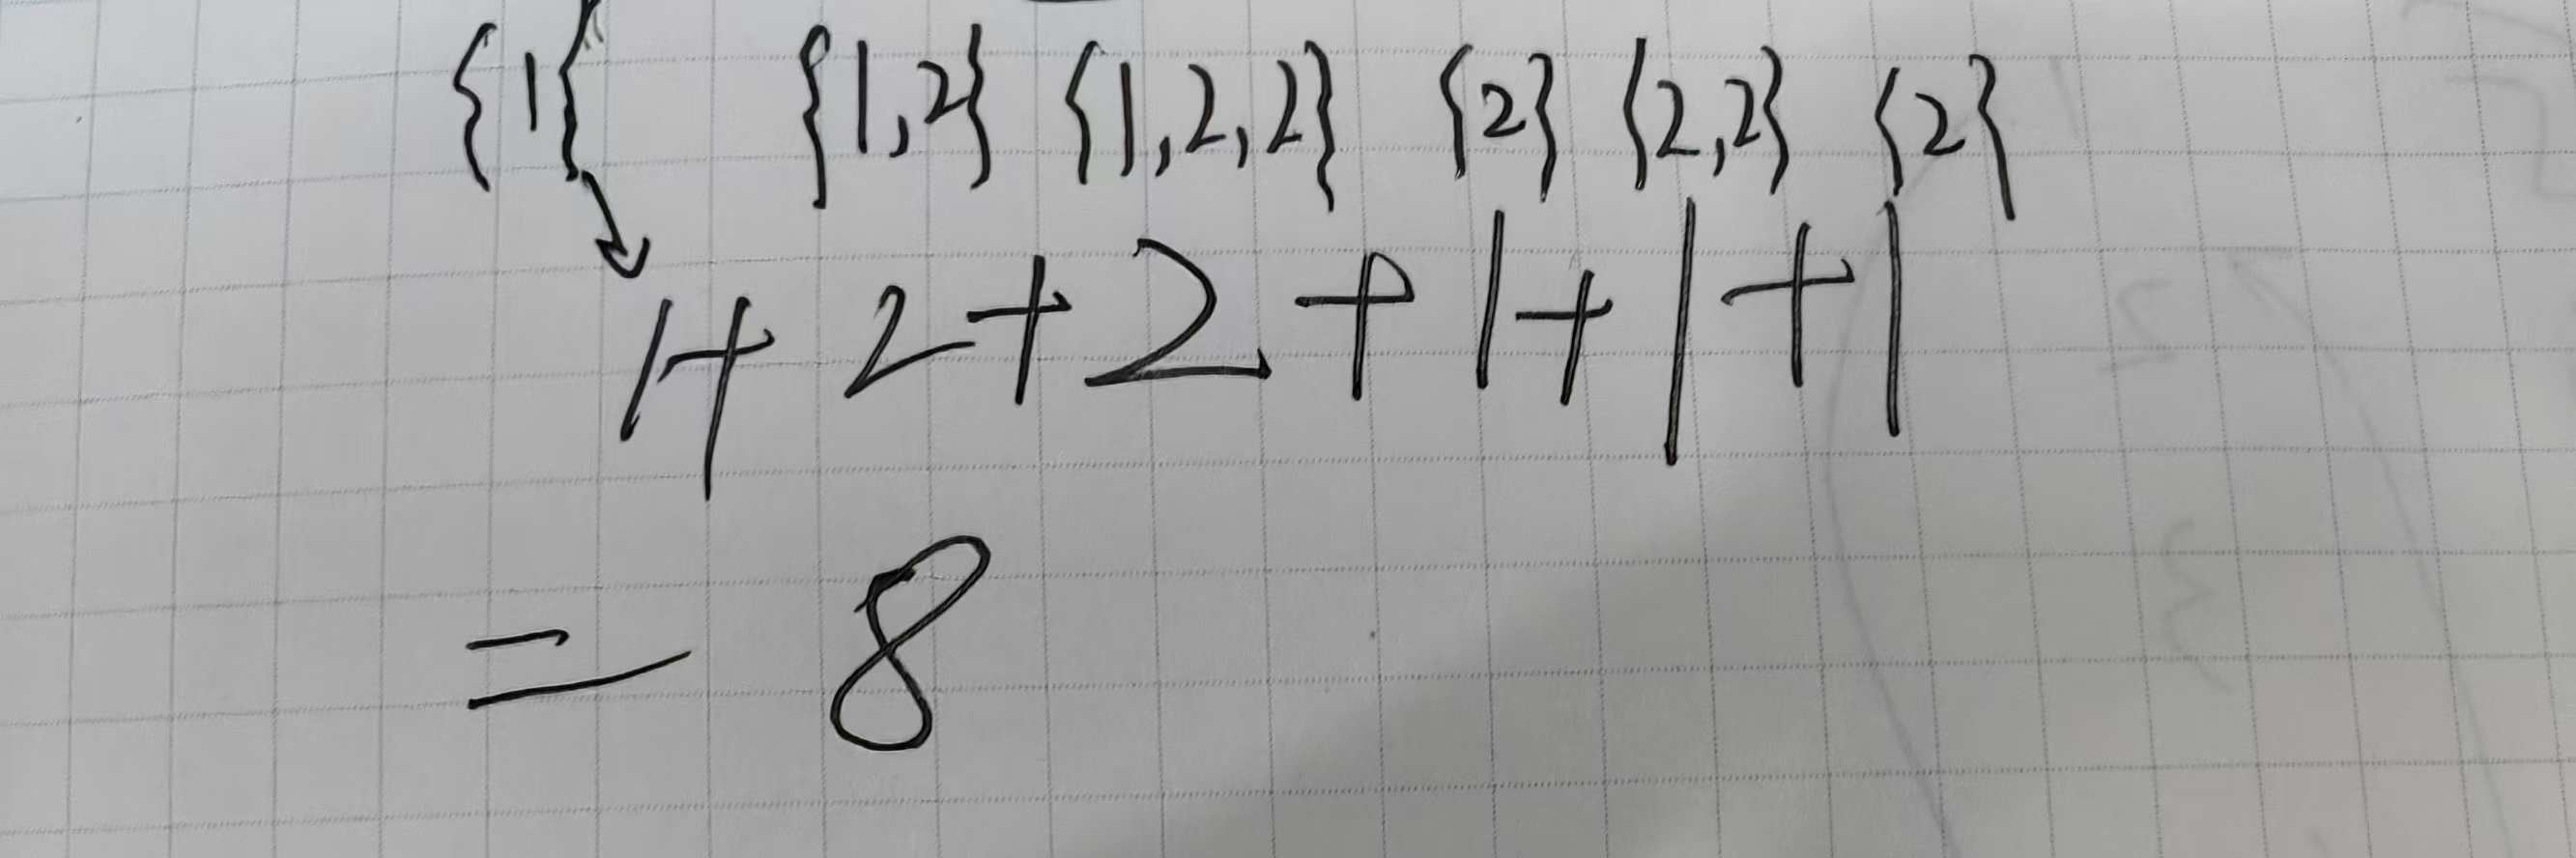 {1} {1,2} {1,2,2} {2} {2,2} {2}
1+2+2+1+1+1
= 8